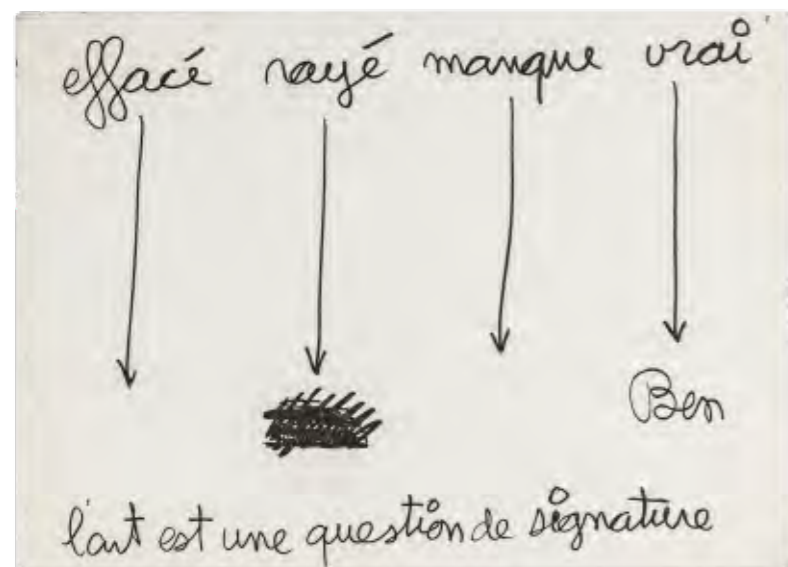 effacé rayé manque vrai
Ben
l'art est une question de signature